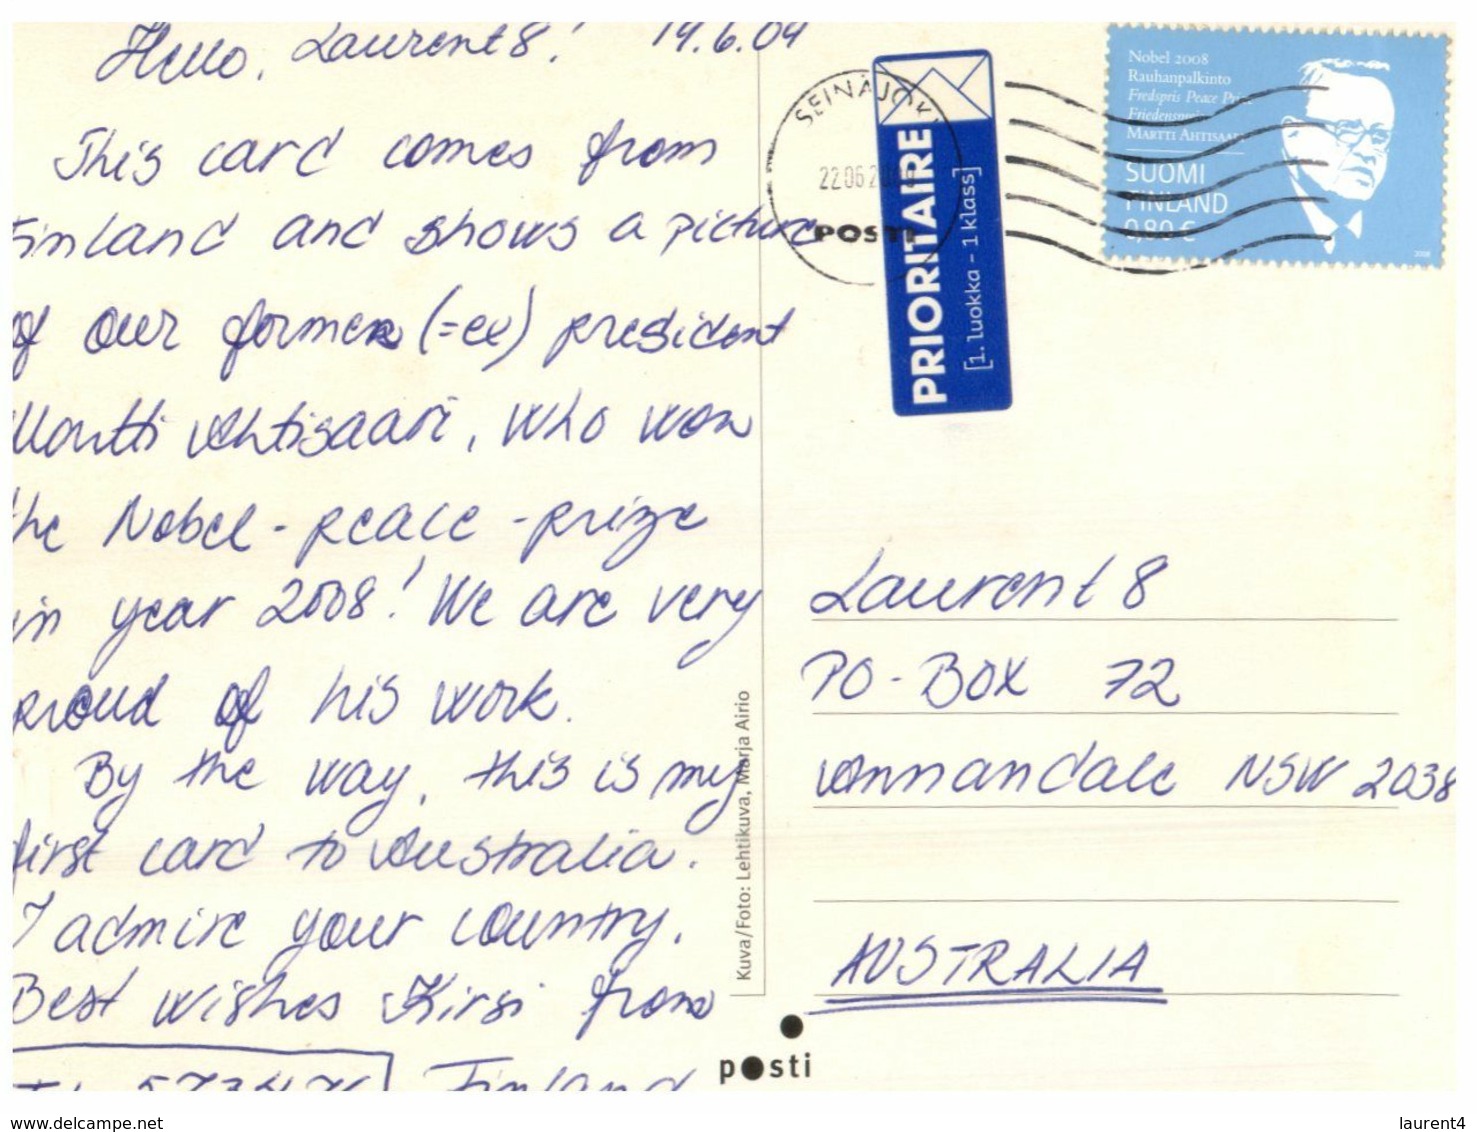 Hello, Laurent8! 19.6.09
This card comes from
Finland and shows a picture
of our former (=ex) president
Martti Ahtisaari, who won
the Nobel-peace-prize
in year 2008! We are very
proud of his work.
By the way, this is my
first card to Australia.
I admire your country.
Best wishes Kirsi from
Finland
Kuva/Foto: Lehtikuva, Marja Airio
posti
SEINÄJOKI
22.06.2
POSTI
PRIORITAIRE
[1. luokka – 1 klass]
Nobel 2008
Rauhanpalkinto
Fredspris Peace Prize
Friedenspreis
MARTTI AHTISAARI
SUOMI
FINLAND
0,80 €
2008
Laurent 8
PO-BOX 72
Annandale NSW 2038
AUSTRALIA
www.delcampe.net
laurent4